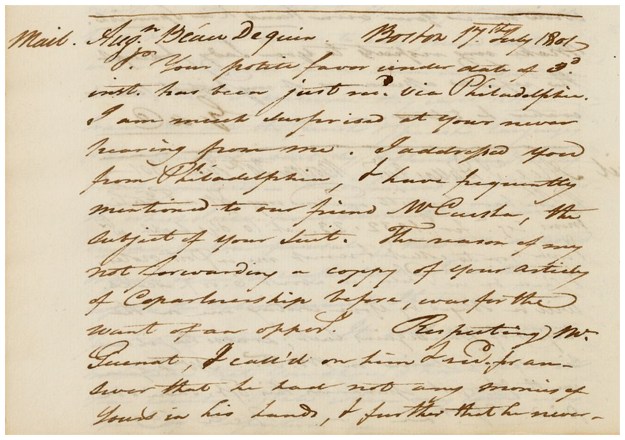 Mail. Augn. Béau Dequin. Boston 17th July 1801
Your polite favor under date of 3d
inst. has been just recd. via Philadelphia.
I am much surprised at your never
hearing from me. I addressed you
from Philadelphia, & have frequently
mentioned to our friend the
subject of your suit. The reason of my
not forwarding a coppy of your articles
of Copartnership before, was for the
want of an oppory. Respecting Mr.
Guenat, I call'd on him & recd. for an-
swer that he had not any monies of
yours in his hands, & further that he never-